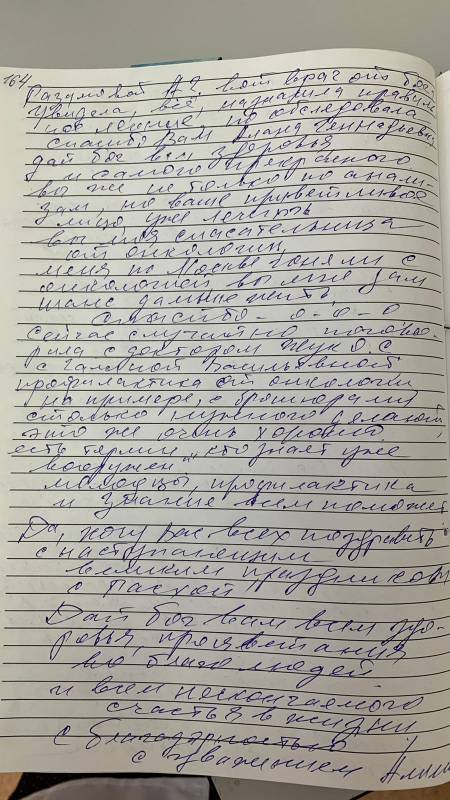 164
Разумовой А.Г. вот врач от бога
Увидела, всё, назначила правиль
ное лечение, по обследовала
спасибо Вам Алана Геннадьевна
дай бог вам здоровья
и самого прекрасного
вы же не только по анали-
зам, но ваше приветливое
лицо уже лечить
вы моя спасательница
от онкологии,
меня по Москве гоняли с
онкологией, вы мне дали
шанс дальше жить,
спасибо - о - о - о
Сейчас случайно погово-
рила с доктором Жук О.С.
с Галиной Васильевной
профилактика от онкологии
на примере, с брошюрами
столько нужного делают,
это же очень хорошо,
есть термин "кто знает уже
вооружен"
молодцы, профилактика
и знание всем поможет
Да, хочу вас всех поздравить
с наступающим
великим праздником
с Пасхой
Дай бог вам всем здо-
ровья, процветания
во благо людей
и всем нескончаемого
счастья в жизни
с благодарностью
с уважением